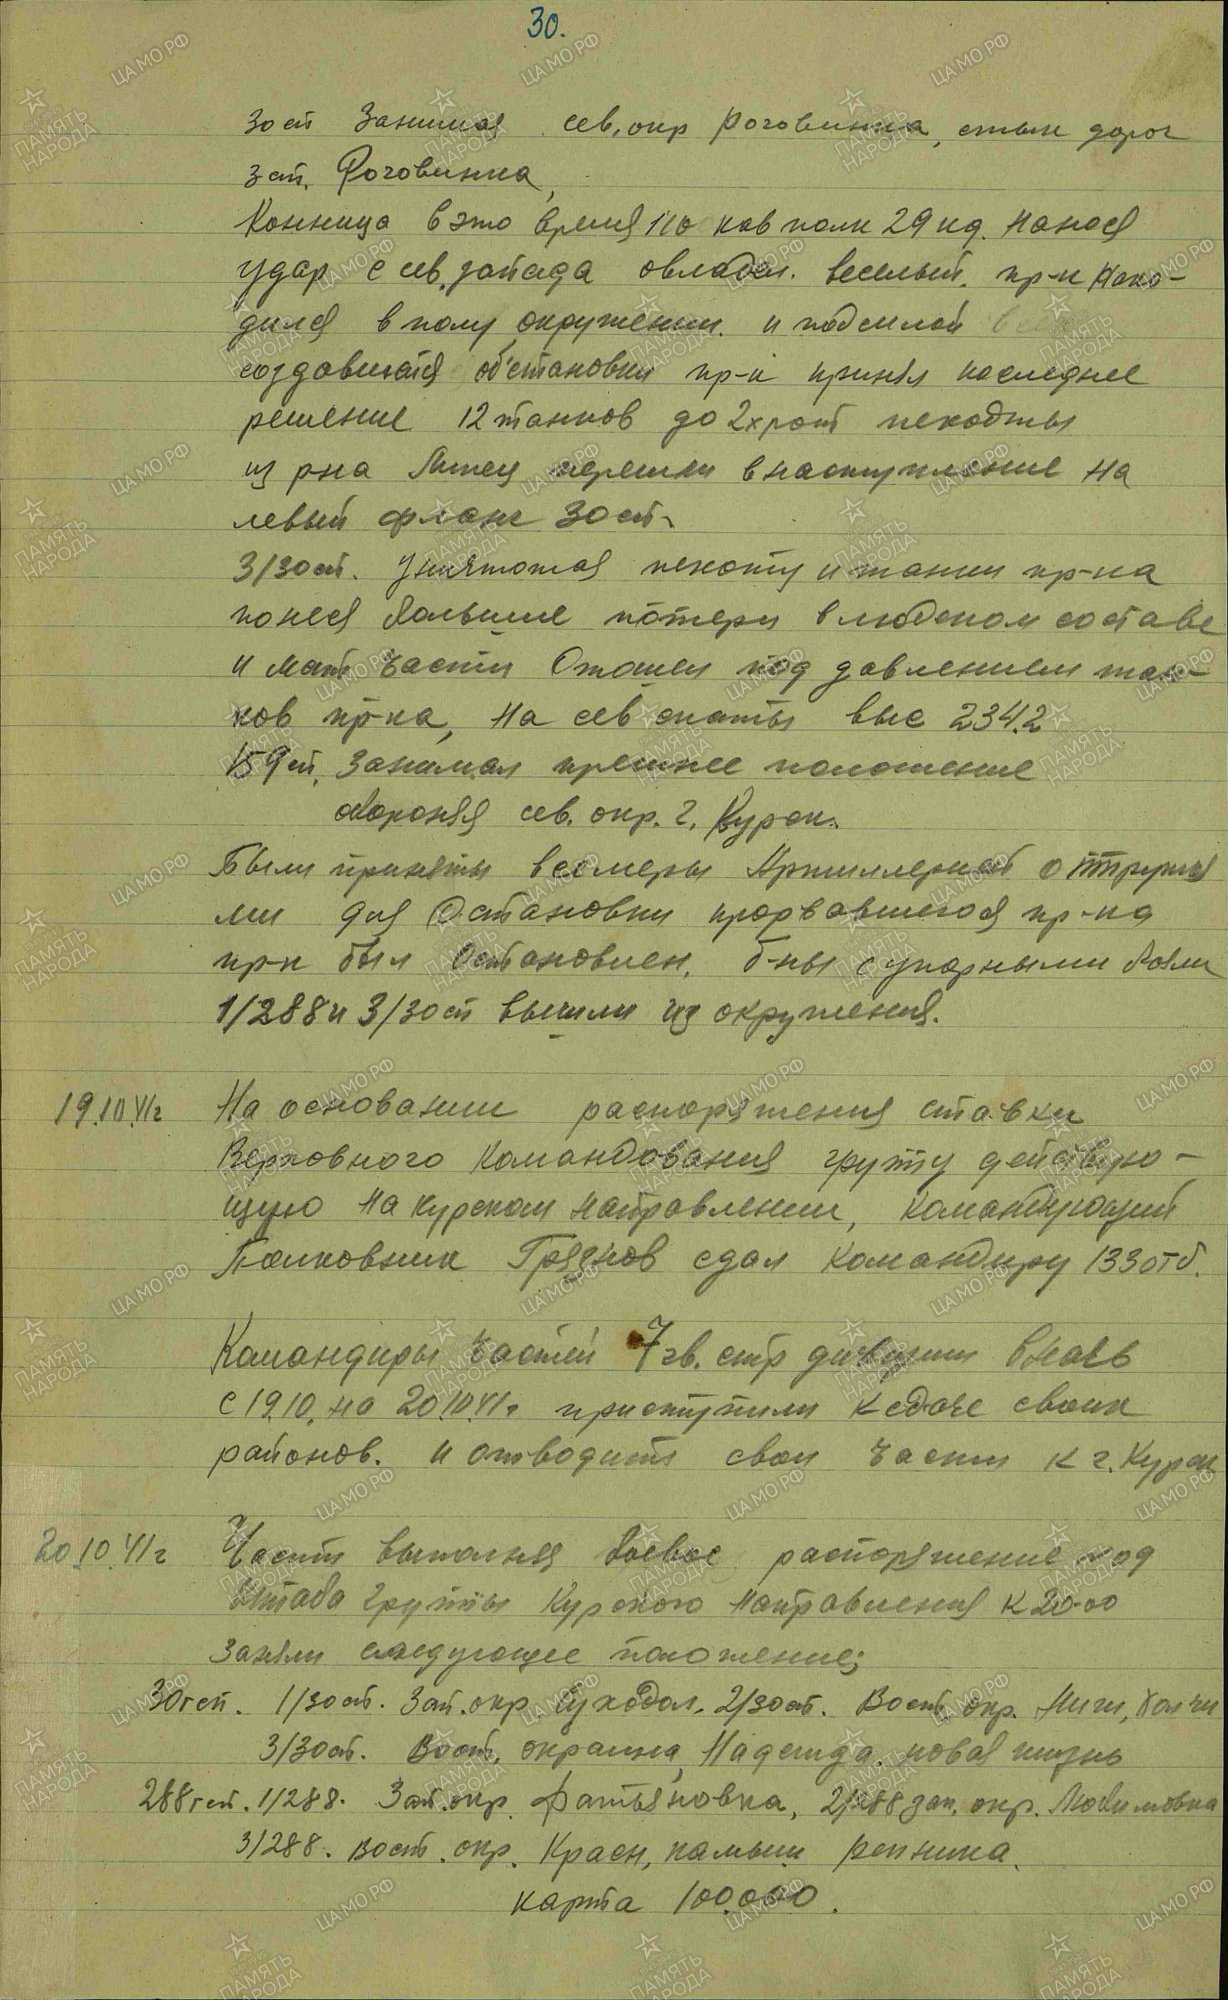 30.
30 сп занимая сев. окр Роговинка, стык дорог
зап. Роговинка,
Конница в это время 110 кав полк 29 кд. нанося
удар с сев. запада овладел. веселый. пр-к нахо-
дился в полу окружении. и под силой
создавшейся об'становки пр-к принял последнее
решение 12 танков до 2х рот пехоты
из р-на Липец перешли в наступление на
левый фланг 30 сп.
3/30 сп. Уничтожая пехоту и танки пр-ка
понеся большие потери в людском составе
и мат части Отошел под давлением тан-
ков пр-ка, на сев скаты выс 234.2
159 сп. Занимал прежнее положение
обороняя сев. окр. г. Курск.
Были приняты все меры Артиллерией
ми для Остановки прорвавшегося пр-ка
пр-к был Остановлен. б-ны с упорными боями
1/288 и 3/30 сп вышли из окружения.
19.10.41г На основании распоряжения ставки
Верховного Командования группу действую-
щую на курском направлении, Командующий
Полковник Грязнов сдал командиру 133 отб.
Командиры Частей 7 гв. стр дивизии в ночь
с 19.10. на 20.10.41г. приступили к сдаче своих
районов. и отводить свои части к г. Курск
20.10.41г Части выполняя боевое распоряжение под
Штаба группы Курского Направления к 20-00
заняли следующее положение;
30 гсп. 1/30 сп. Зап. окр. Суходол. 2/30 сп. Вост. окр. Миги,
3/30 сп. Вост. окраина, Надежда. новая жизнь
288 гсп. 1/288. Зап. окр. Фатьяновка, 2/288 зап. окр. Любимовка
3/288. вост. окр. Красн, камыши репника.
карта 100.000.
ЦА МО РФ
ПАМЯТЬ НАРОДА